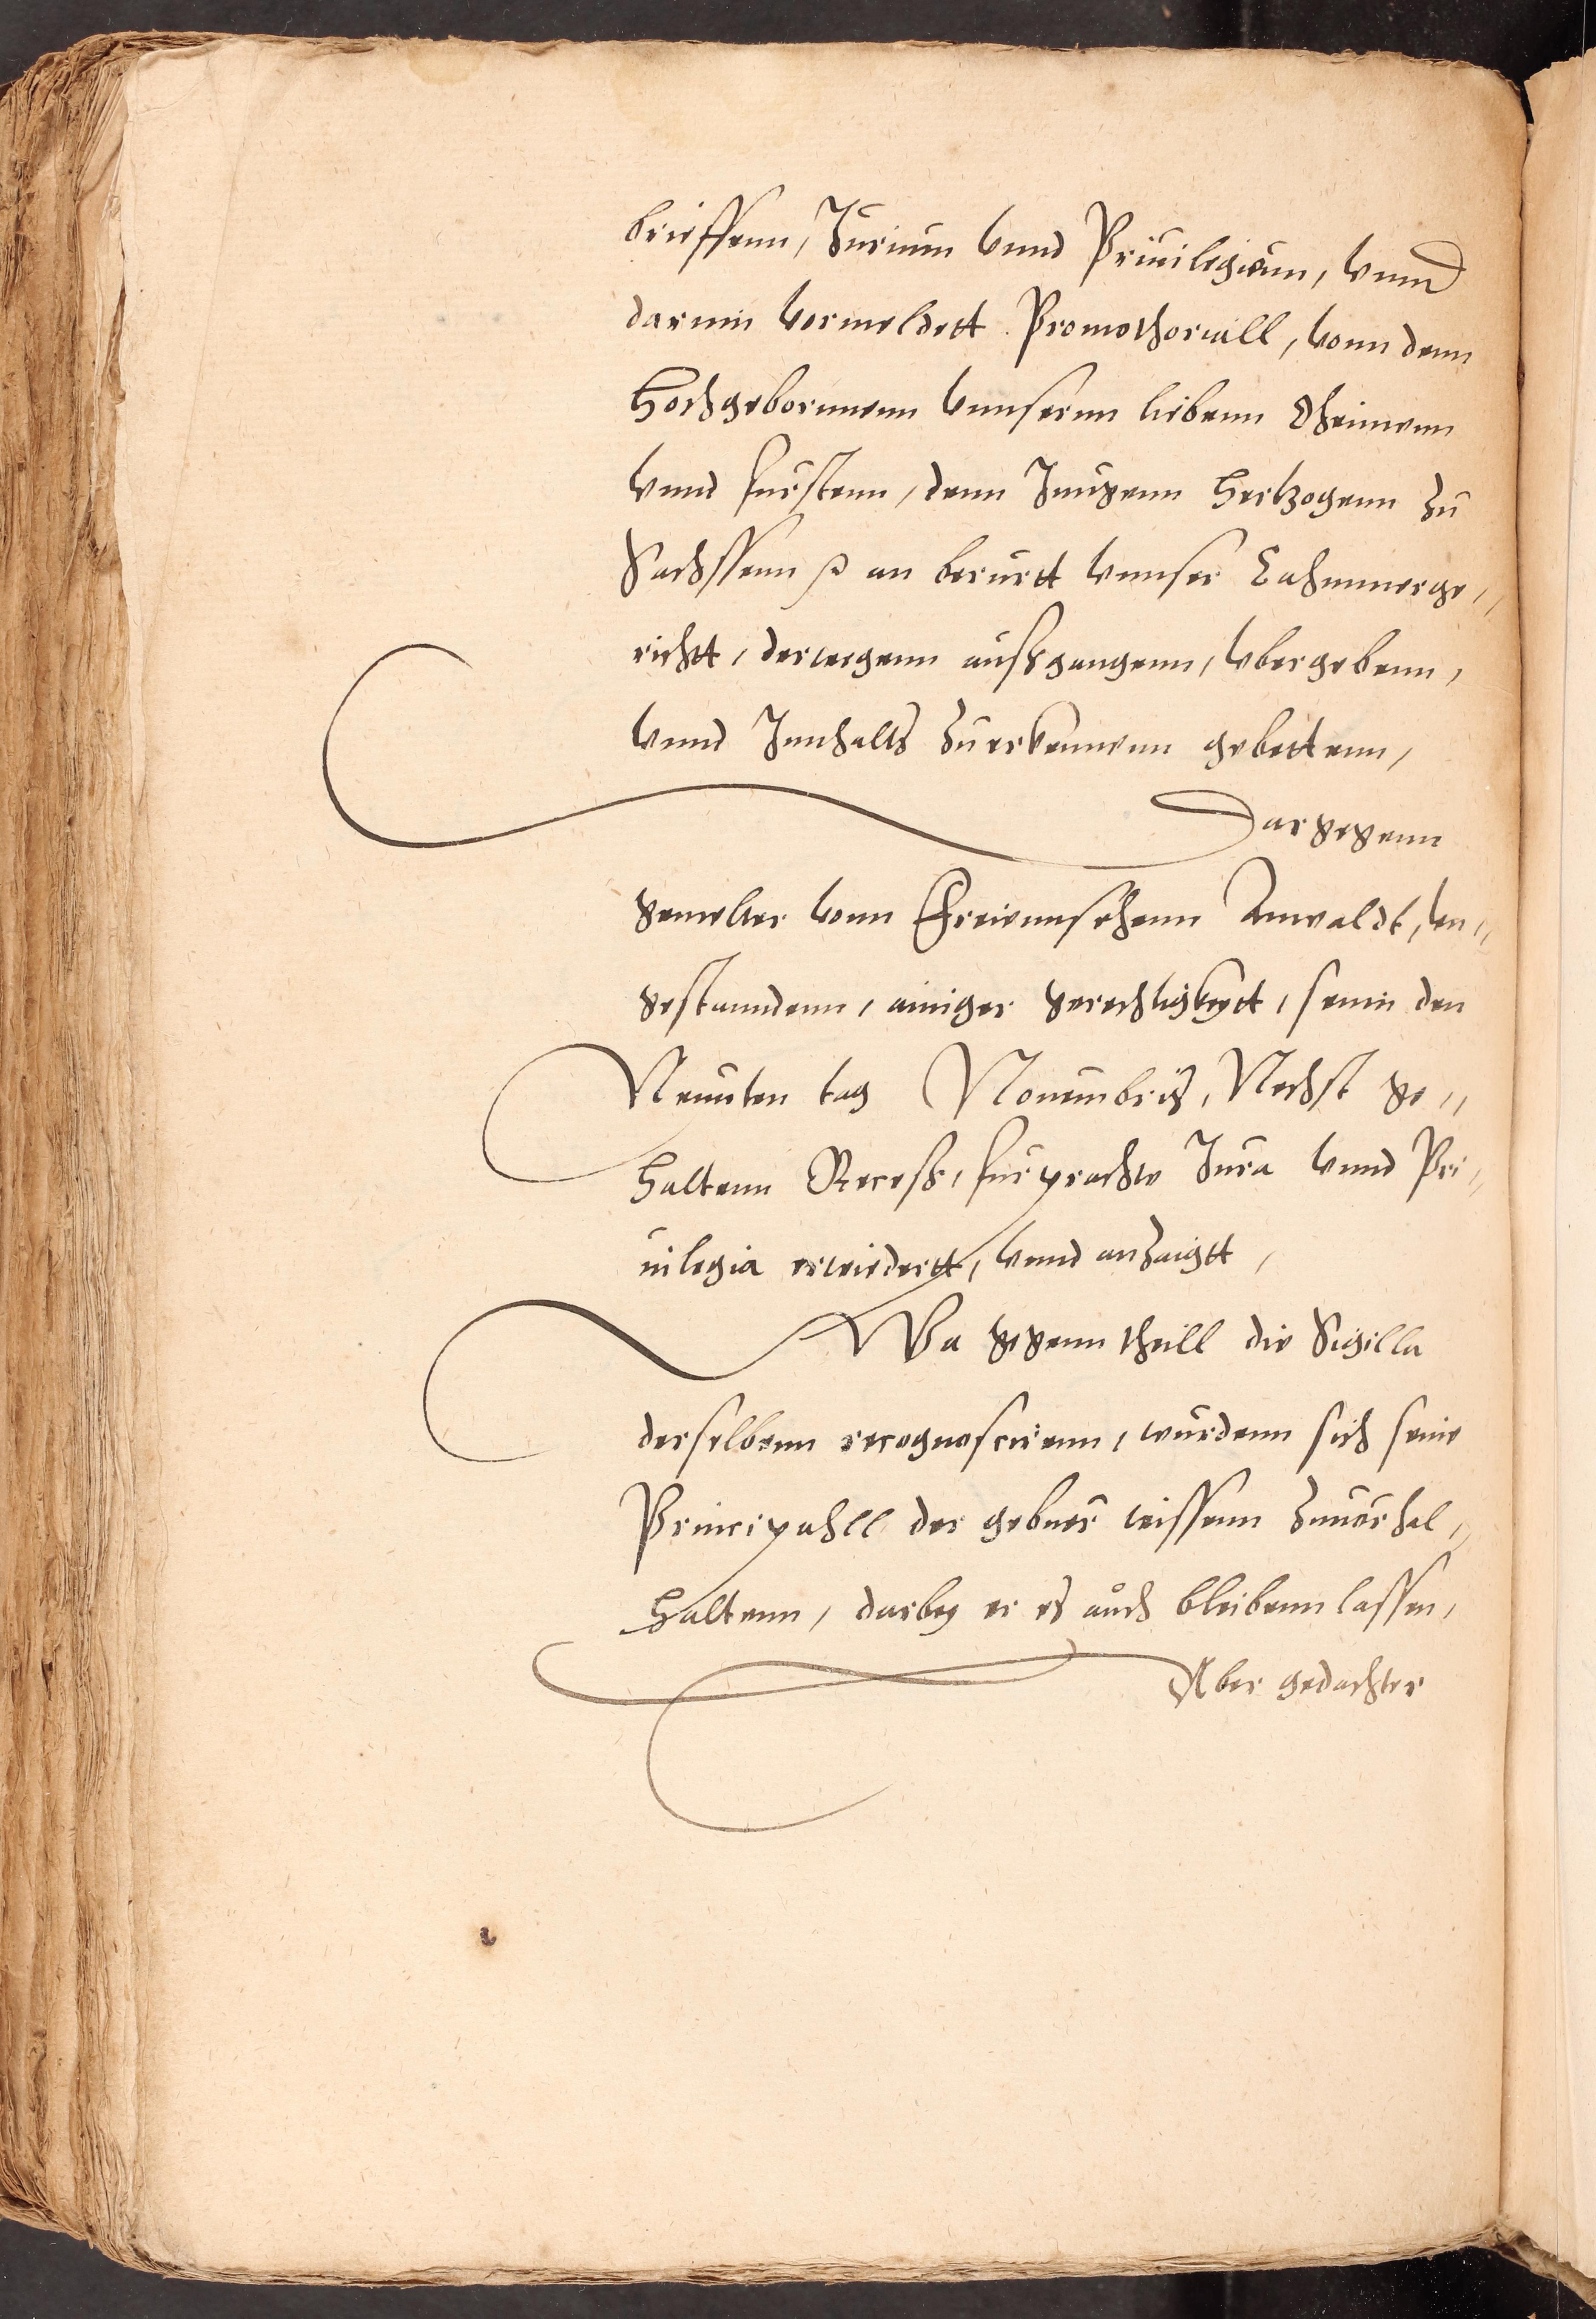 brieffenn, Jurium vnnd Priuilegienn, vnnd
darinn vormeldett Promothoriall, vonn denn
Hochgebornnenn vnnsernn liebenn Oheimenn
vnnd furstenn, denn Jungenn Hertzogenn zu
Sachssenn ꝛc an berurtt vnnser Cahmmerge„
richtt, derwegenn aussgangenn, vbergebenn,
vnnd Innhalts zuerkennenn gebettenn,
Dargegenn
gemelter vonn Chreiennsehenn Anwaldt, vn„
gestanndenn, ainiger gerechtigkeytt, seinn den
Neunten tag Nouembris, Nechst ge„
haltenn Recess, furprachte Jura vnnd Pri„
uilegia erwiedertt, vnnd anzaigtt,
Wa gegenntheill die Sigilla
derselbenn recognoscirenn, wurdenn sich seine
Principahll der gebuer wissenn zuuerhal„
haltenn, darbey er es auch bleibenn lassen,
Aber gedachter